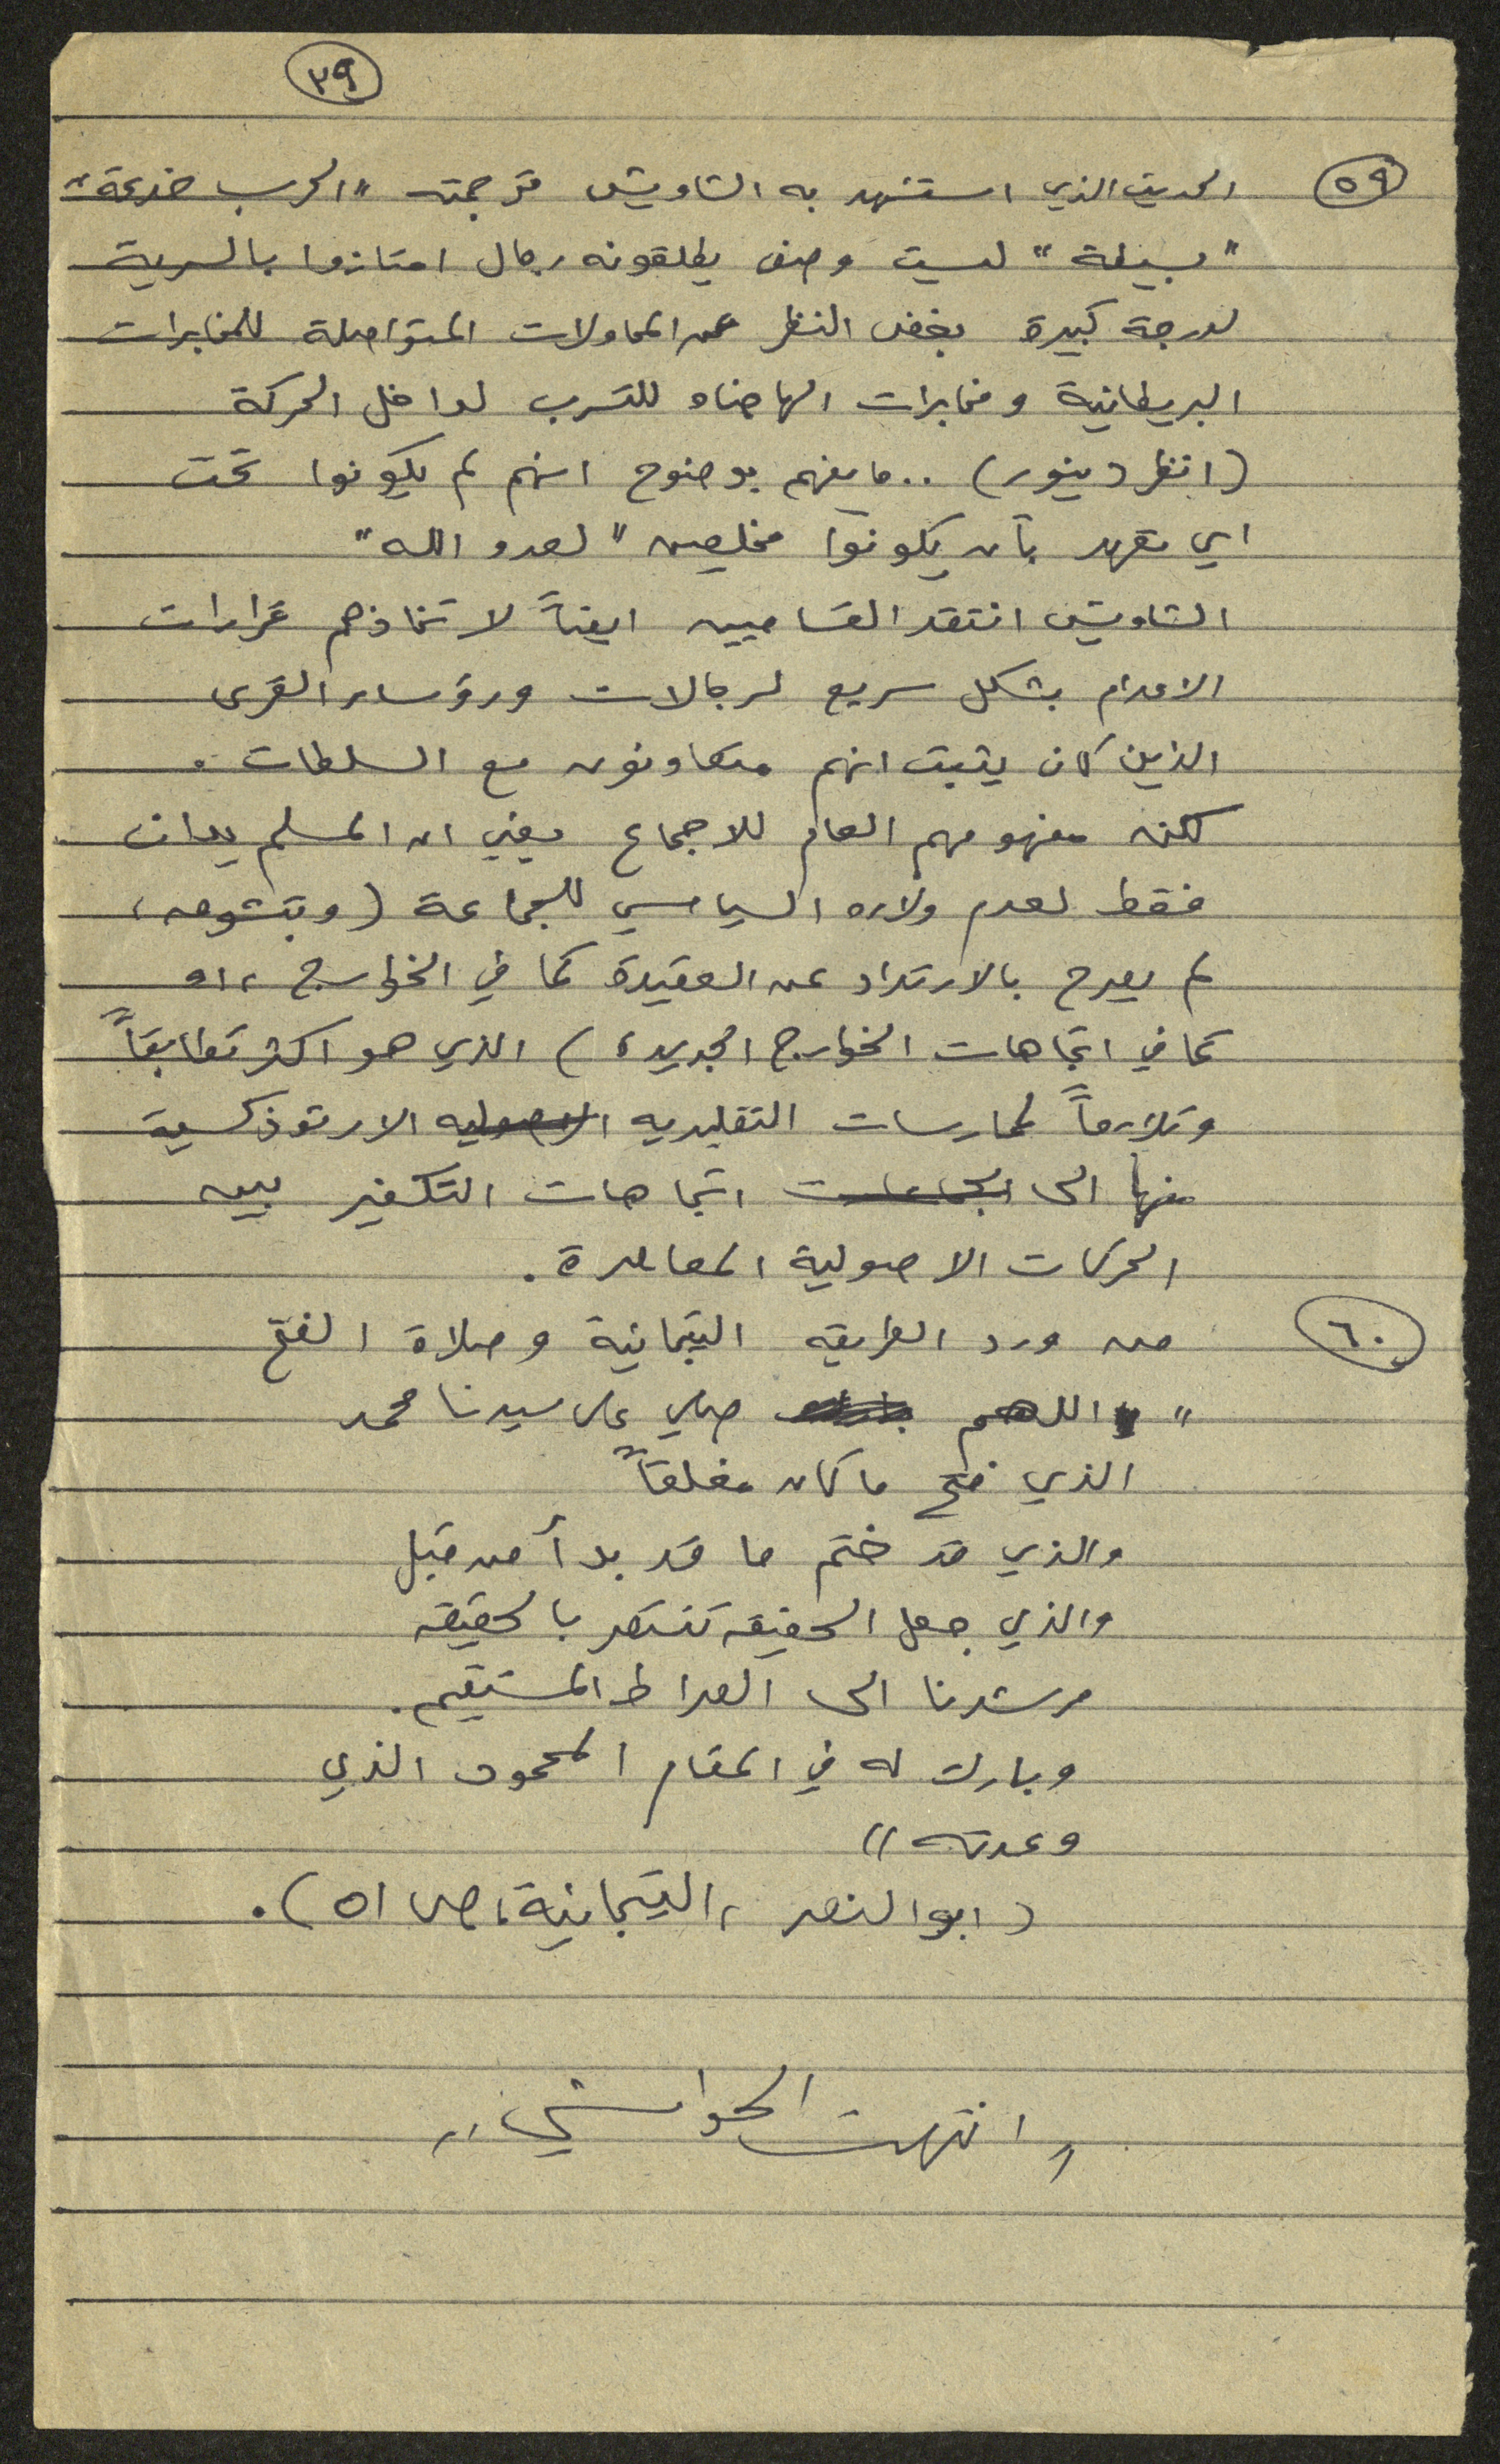 ٣٩
٥٩ الحديث الذي استشهد به الشاويش ترجمته "الحرب خدعة"
"بسيطة" ليست وصف يطلقونه رجال امتازوا بالسرية
لدرجة كبيرة بغض النظر عن المحاولات المتواصلة للمخابرات
البريطانية ومخابرات الهاجناه للتسرب لداخل الحركة
(انظر دينور) .. ما يفهم بوضوح انهم لم يكونوا تحت
اي تعهد بأن يكونوا مخلصين "لعدو الله"
الشاويش انتقد القساميين ايضاً لاتخاذهم قرارات
الاعدام بشكل سريع لرجالات ورؤساء القرى
الذين كان يثبت انهم متعاونون مع السلطات.
لكن مفهومهم العام للاجماع يعني ان المسلم يدان
فقط لعدم ولاءه السياسي للجماعة (
لم يصرح بالارتداد عن العقيدة كما في الخوارج، او
كما في اتجاهات الخوارج الجديدة) الذي هو اكثر تطابقاً
وتلازماً لممارسات التقليديه الاصوليه الارتوذكسية
منها الى الجماعات اتجاهات التكفير بين
الحركات الاصولية المعاصرة.
٦٠ من ورد الطريقه التيجانية وصلاة الفتح
"اللهم صلي على سيدنا محمد
الذي فتح ما كان مغلقاً
والذي قد ختم ما قد بدأ من قبل
والذي جعل الحقيقه تنتصر بالحقيقه
مرشدنا الى الصراط المستقيم.
وبارك له في المقام المحمود الذي
وعدته"
(ابو النصر، التيجانية، ص ٥١).
"انتهت الحواشي"